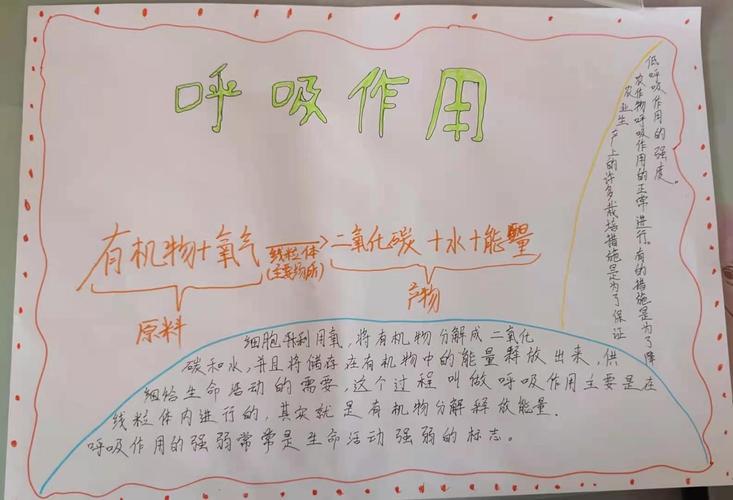 呼吸作用
有机物+氧气 线粒体 二氧化碳+水+能量
(主要场所)
原料
产物
细胞利用氧,将有机物分解成二氧化
碳和水,并且将储存在有机物中的能量释放出来,供
细给生命活动的需要,这个过程叫做呼吸作用主要是在
线粒体内进行的,其实就是有机物分解释放能量.
呼吸作用的强弱常常是生命活动强弱的标志。
农业生产上的许多栽培措施是为了保证
农作物呼吸作用的正常进行。有的措施是为了降
低呼吸作用的强度。